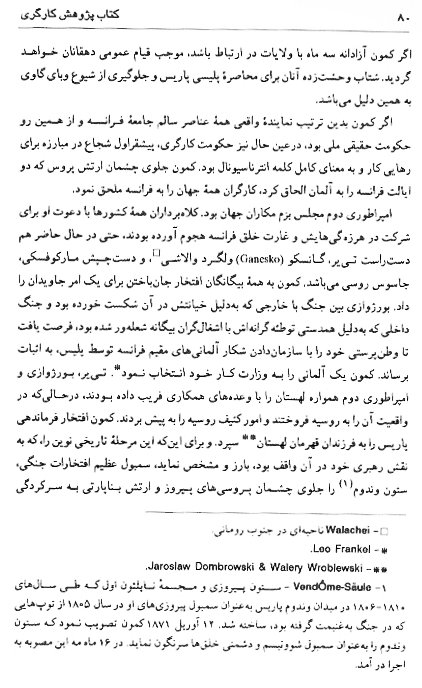 ۸۰
کتاب پژوهش کارگری
اگر کمون آزادانه سه ماه با ولایات در ارتباط باشد، موجب قیام عمومی دهقانان خواهد
گردید. شتاب وحشت‌زده آنان برای محاصرهٔ پلیسی پاریس و جلوگیری از شیوع وبای گاوی
به همین دلیل می‌باشد.
اگر کمون بدین ترتیب نمایندهٔ واقعی همهٔ عناصر سالم جامعهٔ فرانسه و از همین رو
حکومت حقیقی ملی بود، درعین حال نیز حکومت کارگری، پیشقراول شجاع در مبارزه برای
رهایی کار و به معنای کامل کلمه انترناسیونال بود. کمون جلوی چشمان ارتش پروس که دو
ایالت فرانسه را به آلمان الحاق کرد، کارگران همهٔ جهان را به فرانسه ملحق نمود.
امپراطوری دوم مجلس بزم مکاران جهان بود. کلاه‌برداران همهٔ کشورها با دعوت او برای
شرکت در هرزه‌گی‌هایش و غارت خلق فرانسه هجوم آورده بودند، حتی در حال حاضر هم
دست‌راست تی‌یر، گانسکو (Ganesko) ولگرد والاشی□، و دست‌چپش مارکوفسکی،
جاسوس روسی می‌باشد. کمون به همهٔ بیگانگان افتخار جان‌باختن برای یک امر جاویدان را
داد. بورژوازی بین جنگ با خارجی که به‌دلیل خیانتش در آن شکست خورده بود و جنگ
داخلی که به‌دلیل همدستی توطئه‌گرانه‌اش با اشغال‌گران بیگانه شعله‌ور شده بود، فرصت یافت
تا وطن‌پرستی خود را با سازمان‌دادن شکار آلمانی‌های مقیم فرانسه توسط پلیس، به اثبات
برساند. کمون یک آلمانی را به وزارت کار خود انتخاب نمود*. تی‌یر، بورژوازی و
امپراطوری دوم همواره لهستان را با وعده‌های همکاری فریب داده بودند، درحالی‌که در
واقعیت آن را به روسیه فروختند و امور کثیف روسیه را به پیش بردند. کمون افتخار فرماندهی
پاریس را به فرزندان قهرمان لهستان** سپرد. و برای این‌که این مرحلهٔ تاریخی نوین را، که به
نقش رهبری خود در آن واقف بود، بارز و مشخص نماید، سمبول عظیم افتخارات جنگی،
ستون وندوم(۱) را جلوی چشمان پروسی‌های پیروز و ارتش بناپارتی به سرکردگی
□- Walachei ناحیه‌ای در جنوب رومانی.
*- Leo Frankel.
**- Jaroslaw Dombrowski & Walery Wroblewski.
۱- VendÔme-Säule - ستون پیروزی و مجسمهٔ ناپلئون اول که طی سال‌های
۱۸۱۰-۱۸۰۶ در میدان وندوم پاریس به‌عنوان سمبول پیروزی‌های او در سال ۱۸۰۵ از توپ‌هایی
که در جنگ به‌غنیمت گرفته بود، ساخته شد. ۱۲ آوریل ۱۸۷۱ کمون تصویب نمود که ستون
وندوم را به‌عنوان سمبول شووینیسم و دشمنی خلق‌ها سرنگون نماید. در ۱۶ ماه مه این مصوبه به
اجرا در آمد.